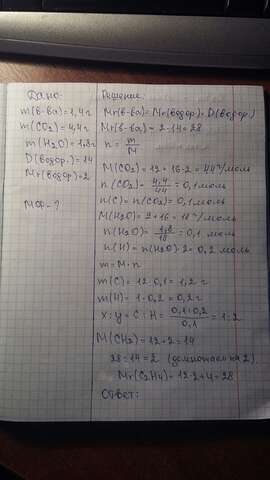 Дано:
m(в-ва)=1,4г
m(CO₂)=4,4г
m(H₂O)=1,8г
D(водор.)=14
Mr(водор)=2
МФ-?
Решение:
Mr(в-ва)=Mr(водор)·D(водор.)
Mr(в-ва)=2·14=28
n=m/M
M(CO₂)=12+16·2=44г/моль
n(CO₂)=4,4/44=0,1моль
n(C)=n(CO₂)=0,1моль
M(H₂O)=2+16=18г/моль
n(H₂O)=1,8/18=0,1 моль
n(H)=n(H₂O)·2=0,2 моль
m=M·n
m(C)=12·0,1=1,2г
m(H)=1·0,2=0,2г
x:y=C:H=0,1:0,2/0,1=1:2
M(CH₂)=12+2=14
28:14=2 (домножаем на 2)
Mr(C₂H₄)=12·2+4=28
Ответ: